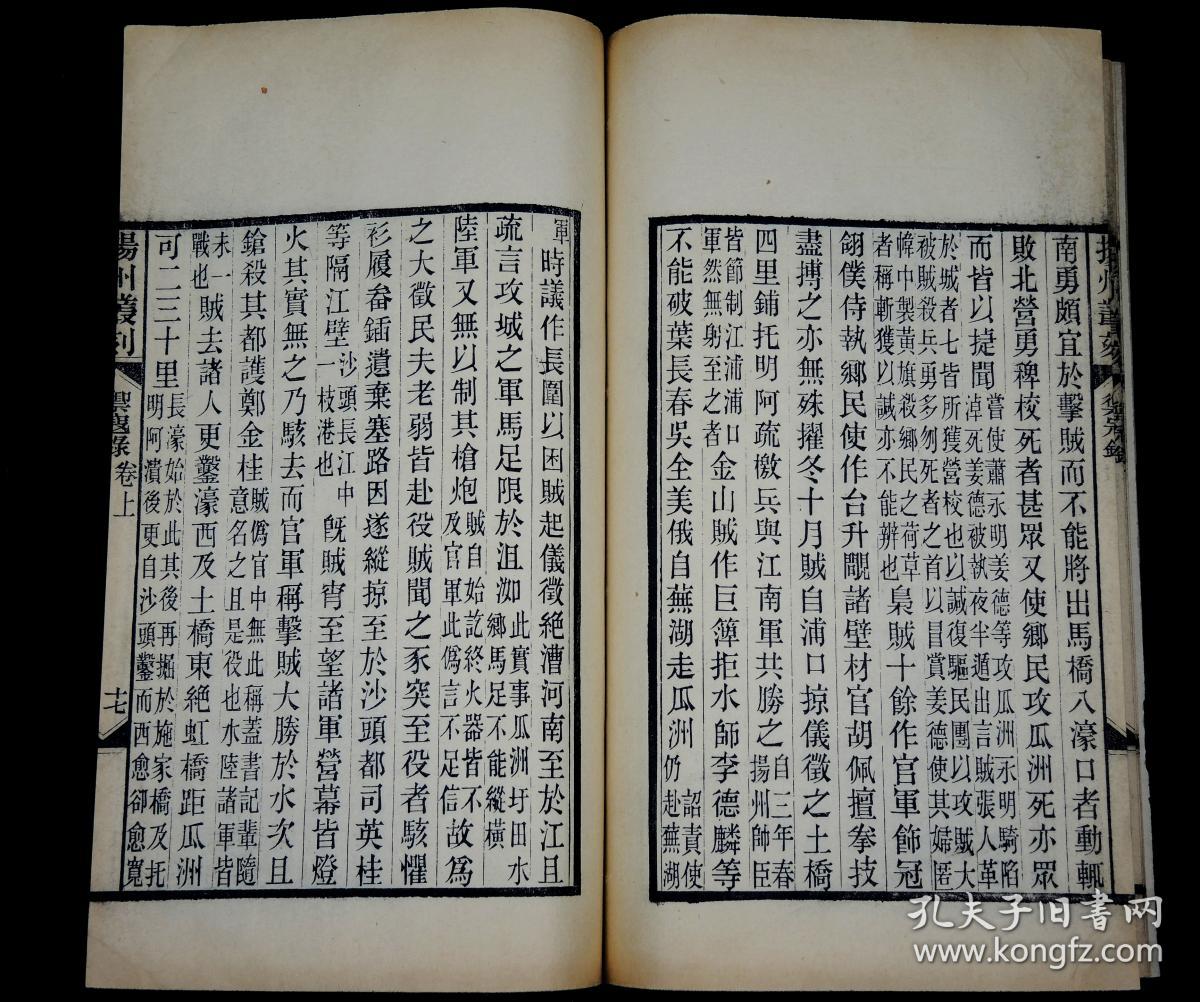 南勇頗宜於擊賊而不能將出馬橋八濠口者動輒
敗北營勇稗校死者甚眾又使鄉民攻瓜洲死亦眾
而皆以捷聞嘗使蕭永明姜德等攻瓜洲永明騎陷淖死姜德被執夜半遁出言賊張人革
於城者七皆所獲營校也以誠復驅民團以攻賊大被賊殺兵勇多刎死者之首以冒賞姜德使其婦匿
幃中製黃旗殺鄉民之荷草者稱斬獲以誠亦不能辨也梟賊十餘作官軍飾冠
翎僕侍執鄉民使作台升覵諸壁材官胡佩擅拳技
盡搏之亦無殊擢冬十月賊自浦口掠儀徵之土橋
四里鋪托明阿疏檄兵與江南軍共勝之自三年春揚州師臣
皆節制江浦浦口軍然無躬至之者金山賊作巨簰拒水師李德麟等
不能破葉長春吳全美俄自蕪湖走瓜洲仍詔責使赴蕪湖
軍時議作長圍以困賊起儀徵絶漕河南至於江且
疏言攻城之軍馬足限於沮洳此實事瓜洲圩田水鄉馬足不能縱橫
陸軍又無以制其槍炮賊自始訖終火器皆不及官軍此僞言不足信故爲
之大徵民夫老弱皆赴役賊聞之豕突至役者駭懼
衫履畚鍤遺棄塞路因遂縱掠至於沙頭都司英桂
等隔江壁沙頭長江中一枝港也旣賊宵至望諸軍營幕皆燈
火其實無之乃駭去而官軍稱擊賊大勝於水次且
鎗殺其都護鄭金桂賊僞官中無此稱蓋書記輩隨意名之且是役也水陸諸軍皆
未一戰也賊去諸人更鑿濠西及土橋東絶虹橋距瓜洲
可二三十里長濠始於此其後再掘於施家橋及托明阿潰後更自沙頭鑿而西愈卻愈寬
揚州叢刻
禦寇錄
卷上
十七
孔夫子旧书网
www.kongfz.com